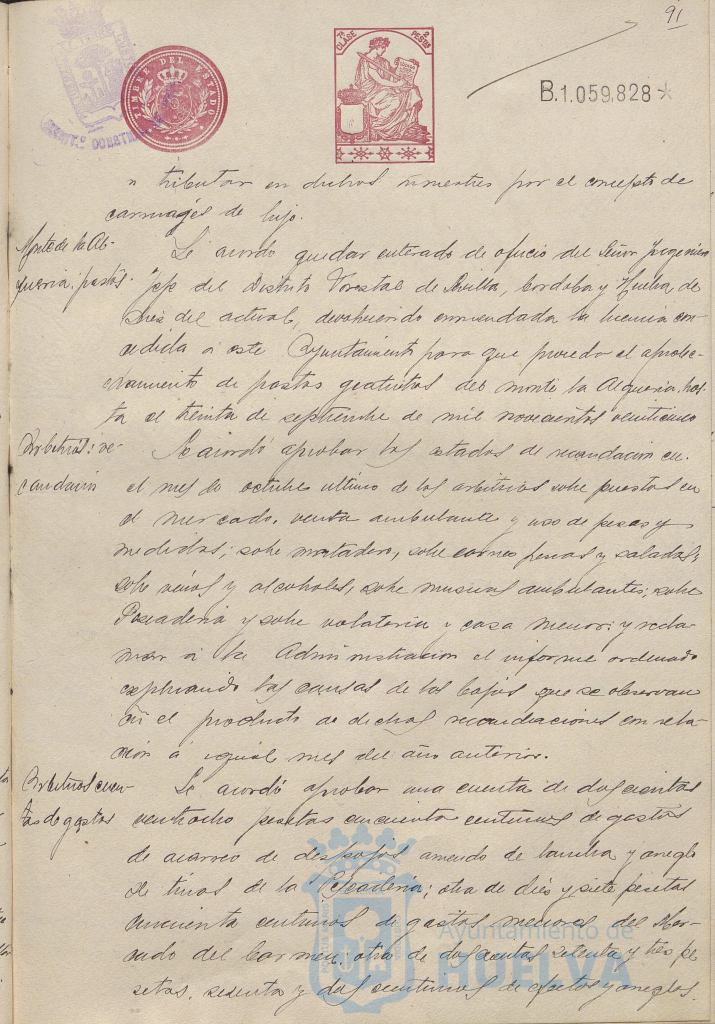 91
7ª CLASE 2 PESETAS
TIMBRE DEL ESTADO
B.1.059,828 *
a tributar en dichos trimestres por el concepto de
carruages de lujo.
Monte de la Al-
queria: pastos
Se acordó quedar enterado de oficio del Señor Ingeniero
Jefe del Distrito Forestal de Sevilla, Cordoba y Huelva, de
del actual, devolviendo enmendada la licencia con-
cedida á este Ayuntamiento para que proceda el aprove-
chamiento de pastos gratuitos del monte la Alqueria, has-
ta el treinta de septiembre de mil novecientos veintiuno
Arbitrios: re-
caudacion
Se acordó aprobar los estados de recaudacion en
el mes de octubre ultimo de los arbitrios sobre puestos en
el mercado, venta ambulante y uso de pesas y
medidas; sobre matadero, sobre carnes frescas y saladas;
sobre vinos y alcoholes, sobre musicas ambulantes; sobre
Pescaderia y sobre volateria y caza menor; y recla-
mar á la Administracion el informe ordenado
explicando las causas de las bajas que se observan
en el producto de dichas recaudaciones con rela-
cion á igual mes del año anterior.
Arbitrios cuen-
tas de gastos
Se acordó aprobar una cuenta de doscientas
veintiocho pesetas cincuenta centimos de gastos
de acarreo de despojos, arriendo de bamba y arreglo
de tinas de la Pescaderia; otra de diez y siete pesetas
cincuenta centimos de gastos menores del Mer-
cado del Carmen; otra de doscientas setenta y tres pe-
setas, sesenta y dos centimos de efectos y arreglos
Ayuntamiento de
HUELVA